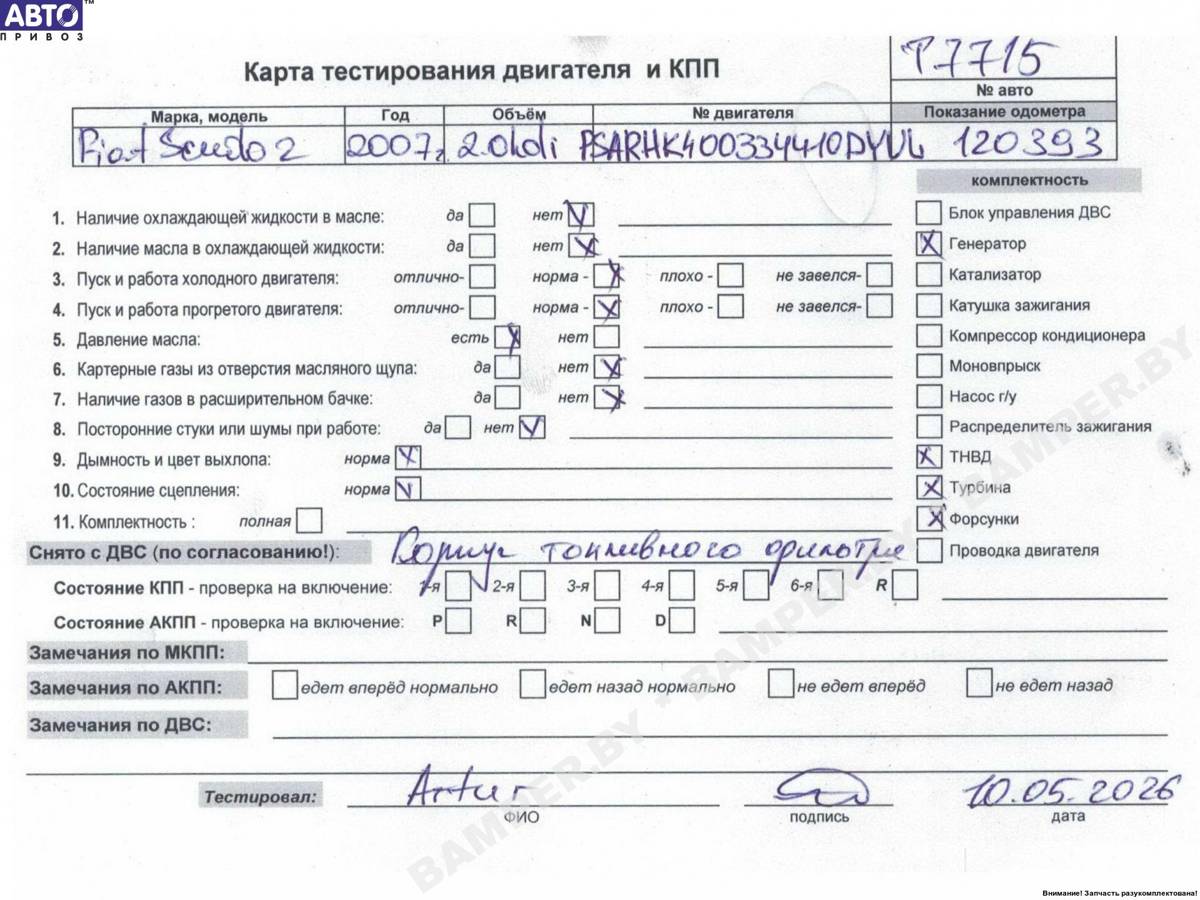 АВТО™
ПРИВОЗ
Т7715
Карта тестирования двигателя и КПП
№ авто
Марка, модель Год Объём № двигателя Показание одометра
Fiat Scudo 2 2007г. 2.0hdi PSARHK400334410DYUL 120393
комплектность
1. Наличие охлаждающей жидкости в масле: да нет V Блок управления ДВС
2. Наличие масла в охлаждающей жидкости: да нет X X Генератор
3. Пуск и работа холодного двигателя: отлично- норма - X плохо - не завелся- Катализатор
4. Пуск и работа прогретого двигателя: отлично- норма - X плохо - не завелся- Катушка зажигания
5. Давление масла: есть X нет Компрессор кондиционера
6. Картерные газы из отверстия масляного щупа: да нет X Моновпрыск
7. Наличие газов в расширительном бачке: да нет X Насос г/у
8. Посторонние стуки или шумы при работе: да нет V Распределитель зажигания
9. Дымность и цвет выхлопа: норма X X ТНВД
10. Состояние сцепления: норма V X Турбина
11. Комплектность : полная X Форсунки
Снято с ДВС (по согласованию!): Корпус топливного фильтра Проводка двигателя
Состояние КПП - проверка на включение: 1-я 2-я 3-я 4-я 5-я 6-я R
Состояние АКПП - проверка на включение: P R N D
Замечания по МКПП:
Замечания по АКПП: едет вперёд нормально едет назад нормально не едет вперёд не едет назад
Замечания по ДВС:
Тестировал: Artur 10.05.2026
ФИО подпись дата
BAMPER.BY - BAMPER.BY - BAMPER.BY
Внимание! Запчасть разукомплектована!